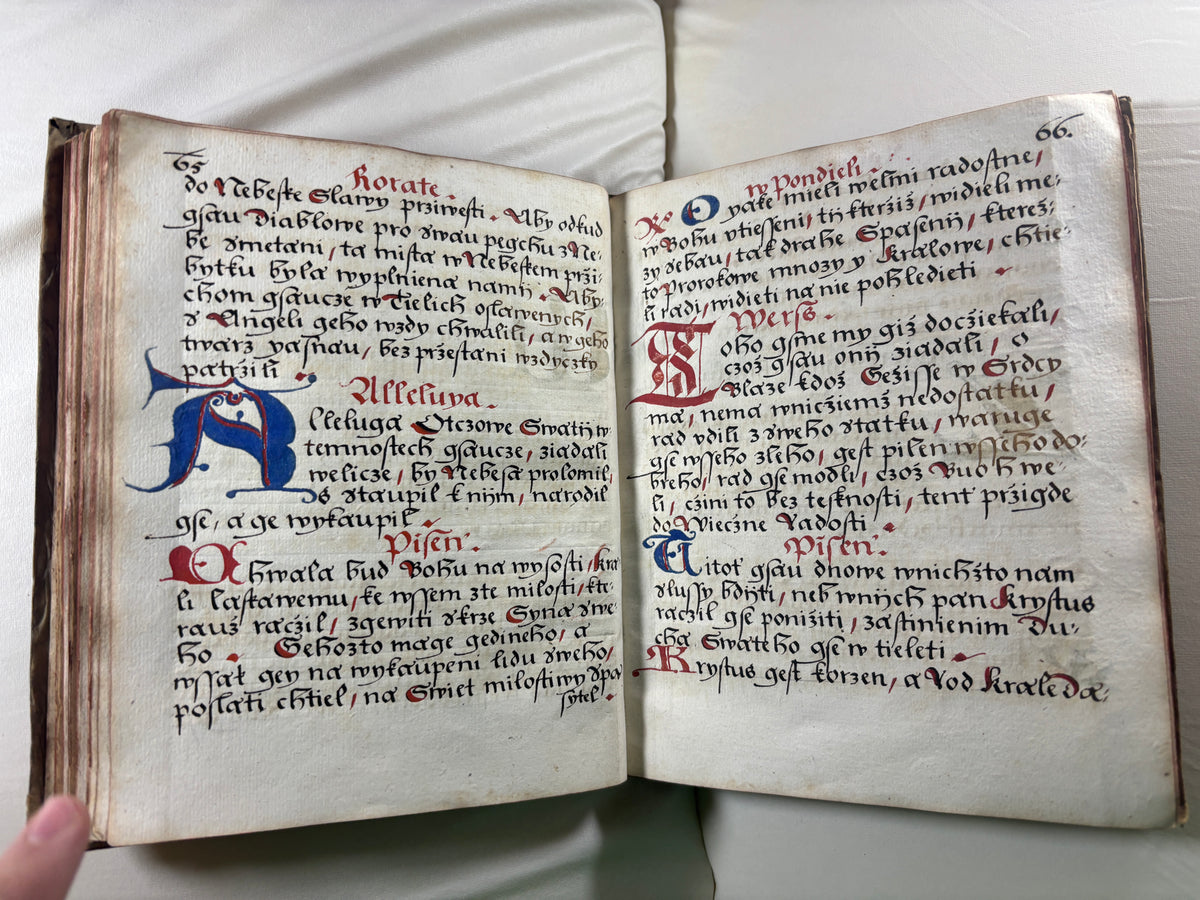 65
Rorate.
do Nebeske Slawy prziwesti. Aby odkud
gsau Diablowe pro swau pegchu z Ne-
be smetani, ta mista w Nebeskem przi-
bytku byla wyplniena nami. Aby-
chom gsaucze w Tielich oslawenych,
s Angeli geho wzdy chwalili, a w geho
twarz yasnau, bez przestani wzdyczky
patrzili.
Alleluya.
Alleluga Otczowe Swatij w
temnostech gsaucze, ziadali
welicze, by Nebesa prolomil,
s staupil k nijm, narodil
gse, a ge wykaupil.
Pisen.
Chwala bud Bohu na wysosti, kra
li laskawemu, ke wssem zte milosti, kte-
rauz raczil, zgewiti skrze Syna swe-
ho. Gehozto mage gedineho, a
wssak gey na wykaupeni lidu sweho,
poslati chtiel, na Swiet milostiwy spa
sytel.
66.
w Pondieli.
R O yake mieli welmi radostne,
w Bohu vtiesseni, tij kterziz, widieli me-
zy sebau, tak drahe Spasenij, kterez-
to Prorokowe mnozy y kralowe, chtie-
li radi, widieti na nie pohledieti.
Werss.
Toho gsme my giz docziekali,
czoz gsau onij ziadali, o
Blaze kdoz Gezisse w Srdcy
ma, nema wnicziemz nedostatku,
rad vdili z sweho statku, waruge
gse wsseho zleho, gest pilen wsseho do-
breho, rad gse modli, czoz Buoh we-
li, czini to bez tesknosti, tent przigde
do Wieczne Radosti.
Pisen.
Titot gsau dnowe wnichzto nam
slussy bdijti, neb wnijch pan Krystus
raczil gse ponizitì, zastinienim Du-
cha Swateho gse w tieleti.
Krystus gest korzen, a Rod krale Da-